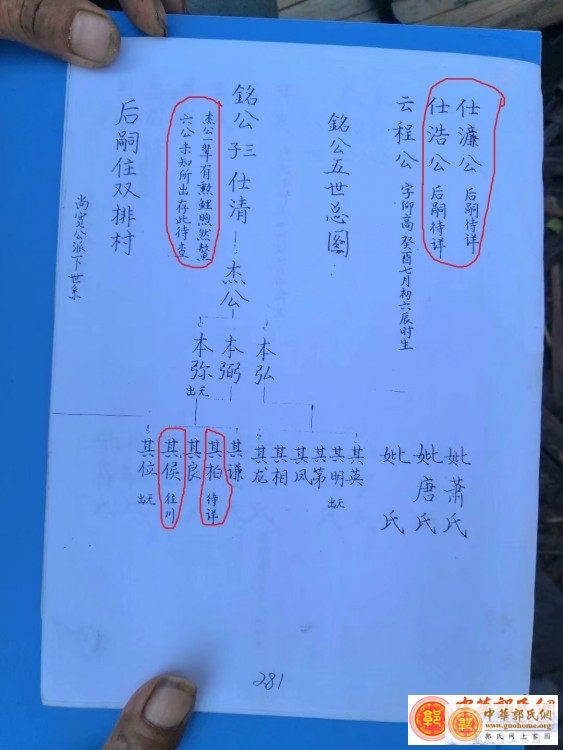 仕濂公 后嗣待详
仕浩公 后嗣待详
云程公 字仰高癸酉七月初六辰时生
妣萧氏
妣唐氏
妣 氏
銘公五世总图
銘公三子仕清
杰公
杰公一辈有勲鲤煦然鳌
六公未知所出存此待查
本弘
本弼
本弥 出无
其英
其明 出无
其第
其凤
其相
其龙
其谦
其柏 待详
其良
其侯 往川
其位 出无
后嗣住双排村
尚宽公派下世系
281
中華郭氏網
www.guohome.org
郭氏网上家园